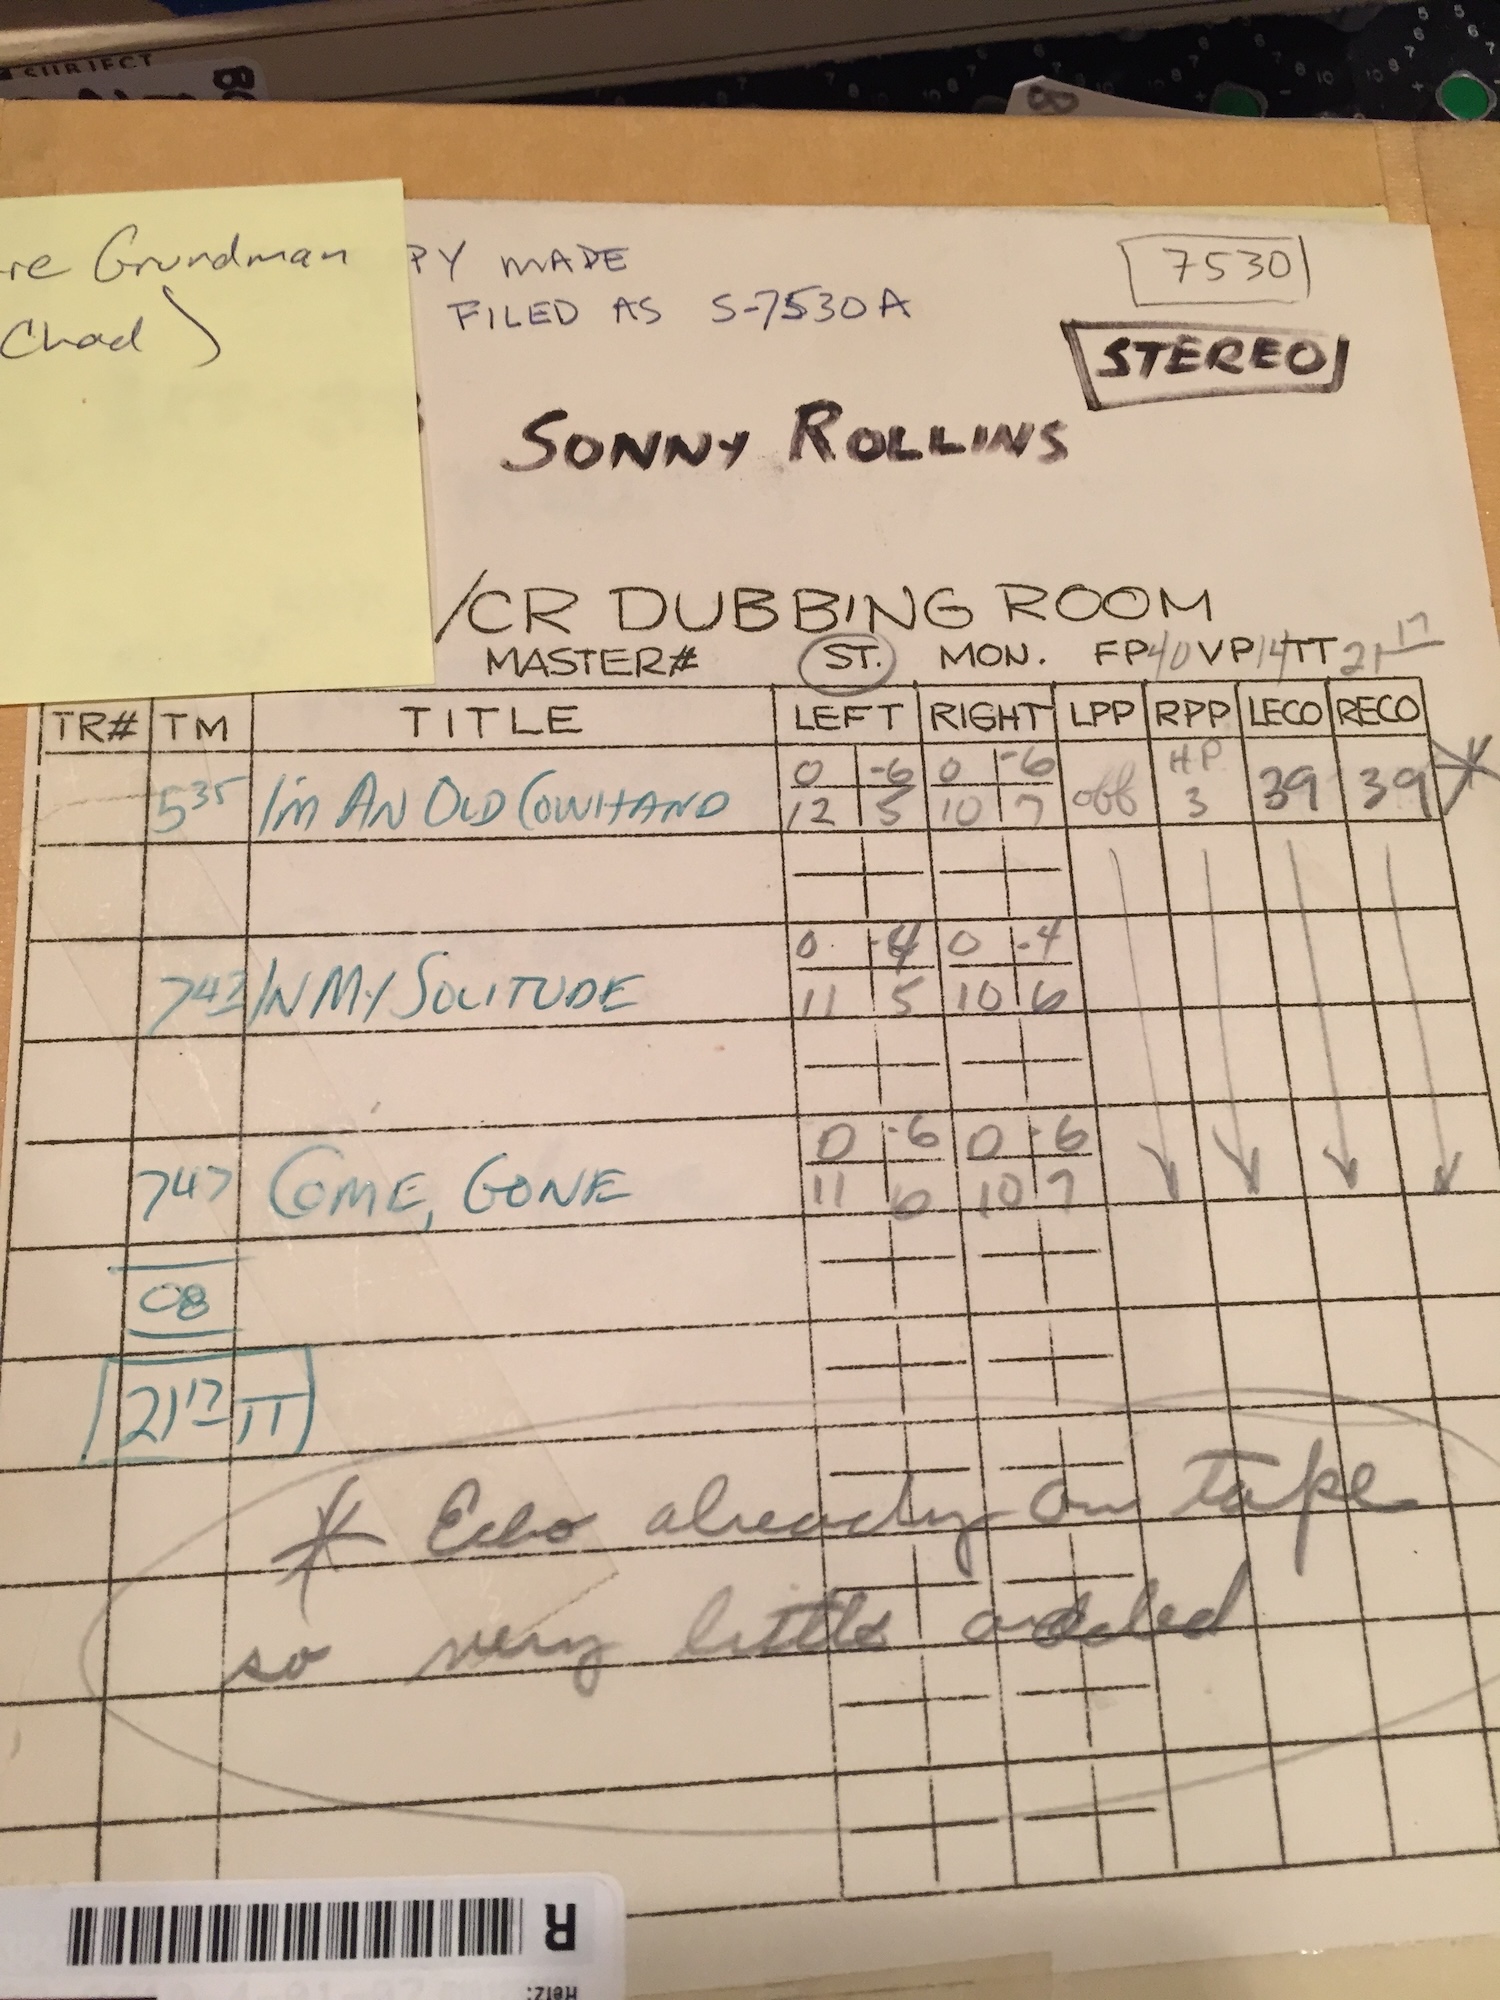 SUBJECT
re Grundman
Chad)
PY MADE
FILED AS S-7530A
7530
STEREO
SONNY ROLLINS
/CR DUBBING ROOM
MASTER# ST. MON. FP 40 VP 14 TT 21 17
TR# TM TITLE LEFT RIGHT LPP RPP LECO RECO
0 -6 0 -6 HP
5 35 I'M AN OLD COWHAND 12 5 10 7 off 3 39 39 *
0 -4 0 -4
7 42 IN MY SOLITUDE 11 5 10 6
0 -6 0 -6
7 47 COME, GONE 11 6 10 7
08
21 17 TT
* Echo already on tape
so very little added
R